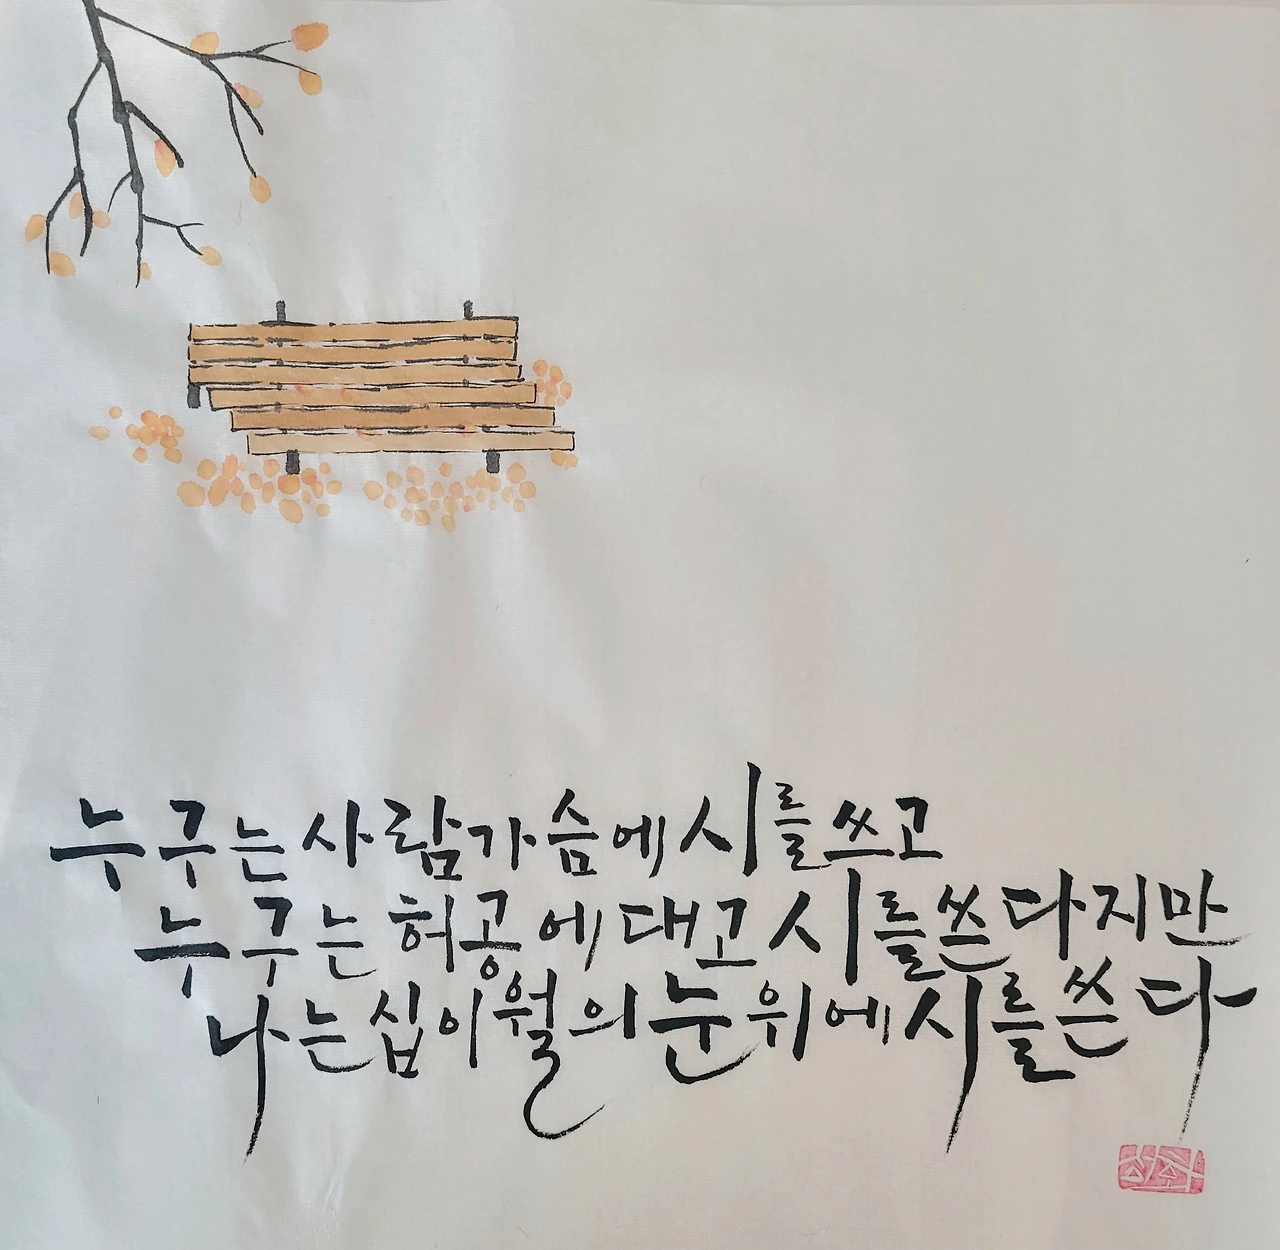 누구는 사람 가슴에 시를 쓰고
누구는 허공에 대고 시를 쓴다지만
나는 십이월의 눈 위에 시를 쓴다